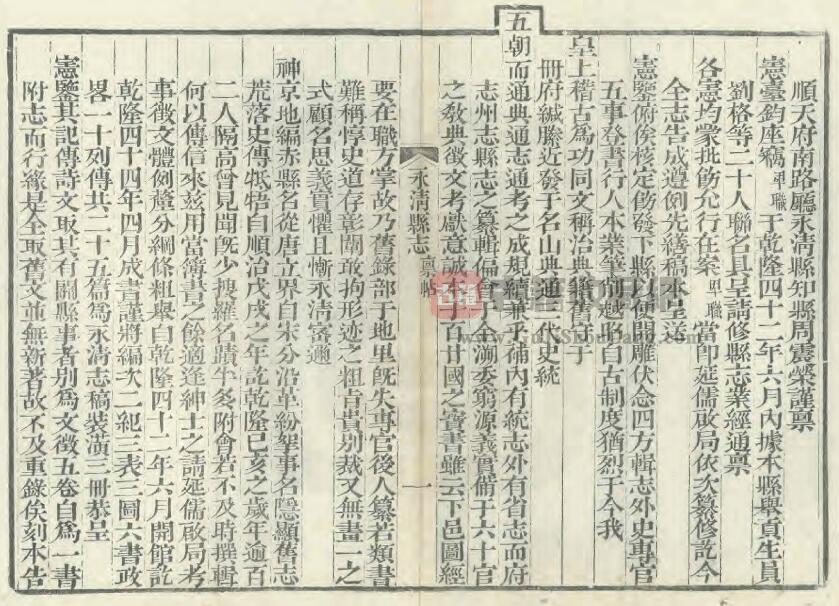 順天府南路廳永清縣知縣周震榮謹禀
憲臺鈞座竊卑職于乾隆四十二年六月內據本縣舉貢生員
劉格等二十人聯名具呈請修縣志業經通禀
各憲均蒙批飭允行在案卑職當卽延儒啟局依次纂修訖今
全志告成遵例先繕稿本呈送
憲鑒俯俟核定飭發下縣以便開雕伏念四方輯志外史專官
五事登書行人本業筆削越昭自古制度猶烈于今我
皇上稽古為功同文稱治典籍舊守于
冊府緘縢近發于名山典通三代史統
五朝而通典通志通考之成規續兼乎補內有統志外有省志而府
志州志縣志之纂輯偏會全溯委窮源義實備于六十官
之敎典徵文考獻意誠本于百廿國之寶書雖云下邑圖經
要在職方掌故乃舊錄部于地里旣失專官後人纂若類書
難稱惇史道存彰闡敢拘形迹之粗肯貴別裁又無畫一之
式顧名思義實懼且慚永清密邇
神京地編赤縣名從唐立界自宋分沿革紛挐事名隱顯舊志
荒落史傳牴牾自順治戊戌之年訖乾隆己亥之歲年逾百
二人隔高曾見聞旣少搜羅名蹟半多附會若不及時撰輯
何以傳信來茲用當簿書之餘適逢紳士之請延儒啟局考
事徵文體例釐分綱條粗舉自乾隆四十二年六月開館訖
乾隆四十四年四月成書謹將編次二紀三表三圖六書政
畧一十列傳共二十五篇為永清志稿裝潢三冊恭呈
憲鑒其記傳詩文取其有關縣事者別為文徵五卷自為一書
附志而行緣是全取舊文並無新著故不及重錄俟刻本告
永清縣志
禀帖
一
古籍